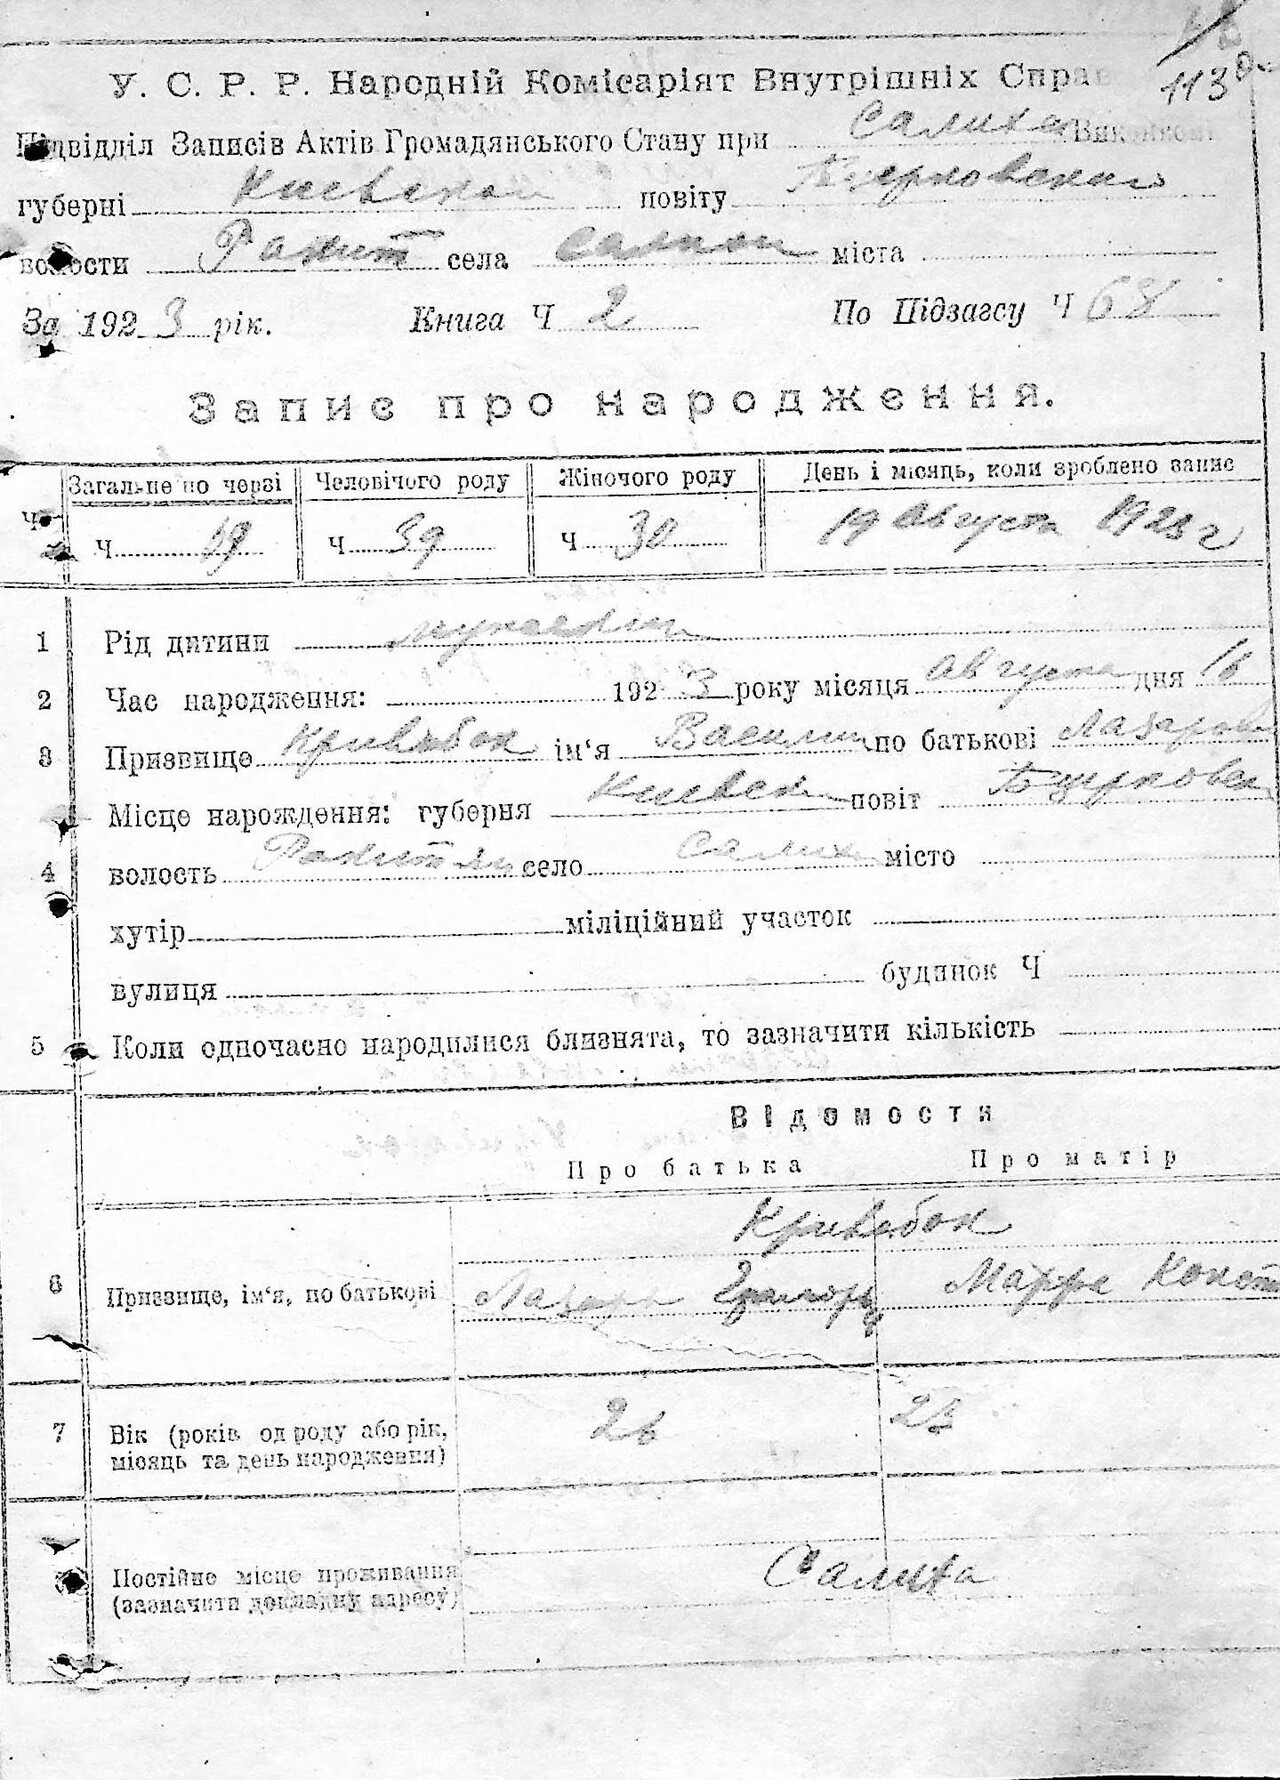 113
У. С. Р. Р. Народній Комісаріят Внутрішніх Справ
Підвідділ Записів Актів Громадянського Стану при Салиха Виконкомі
губерні Киевской повіту Бцерковский
волости Ракит села Салихи міста
За 1923 рік. Книга Ч 2 По Підзагсу Ч 68
Запис про народження.
Загальне по черзі Человічого роду Жіночого роду День і місяць, коли зроблено запис
Ч Ч 39 Ч 30 19 Августа 1923 г
1 Рід дитини мужеский
2 Час народження: 1923 року місяця августа дня 16
3 Призвище Кривобок ім‘я Василий по батькові Лазаров
Місце нарождення: губерня Киевск повіт Бцерковск
4 волость село Салиха місто
хутір міліційний участок
вулиця будинок Ч
5 Коли одночасно народилися близнята, то зазначити кількість
Відомости
Про батька Про матір
Кривобок
6 Призвище, ім‘я, по батькові Лазарь Григорьев Марфа Конст
7 Вік (років од роду або рік, 26
місяць та день народження)
Постійне місце проживання Салиха
(зазначити докладну адресу)